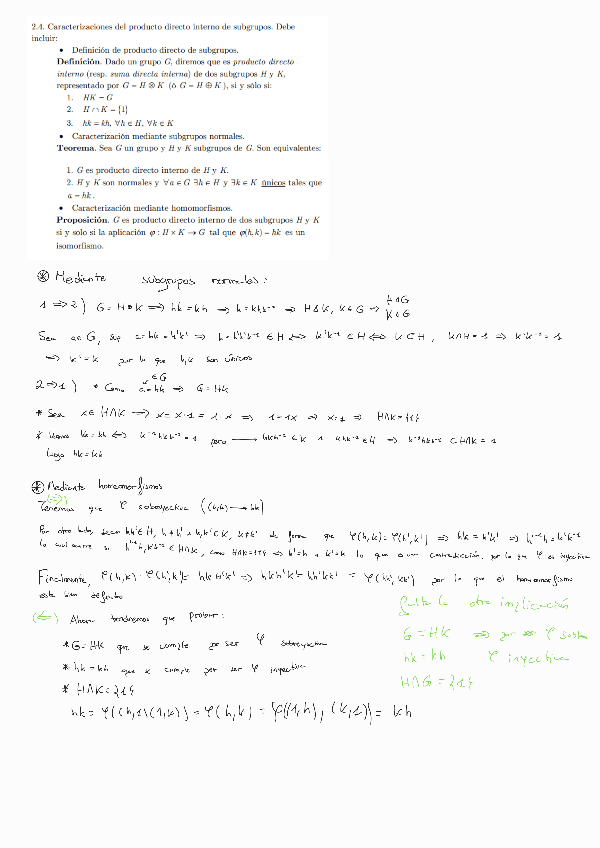 2.4. Caracterizaciones del producto directo interno de subgrupos. Debe
incluir:
• Definición de producto directo de subgrupos.
Definición. Dado un grupo G, diremos que es producto directo
interno (resp. suma directa interna) de dos subgrupos H y K,
representado por G = H ⊗ K (ó G = H ⊕ K), si y sólo si:
1. HK = G
2. H ∩ K = {1}
3. hk = kh, ∀h ∈ H, ∀k ∈ K
• Caracterización mediante subgrupos normales.
Teorema. Sea G un grupo y H y K subgrupos de G. Son equivalentes:
1. G es producto directo interno de H y K.
2. H y K son normales y ∀a ∈ G ∃h ∈ H y ∃k ∈ K únicos tales que
a = hk.
• Caracterización mediante homomorfismos.
Proposición. G es producto directo interno de dos subgrupos H y K
si y solo si la aplicación φ : H × K → G tal que φ(h, k) = hk es un
isomorfismo.
⊛ Mediante subgrupos normales:
1 ⇒ 2) G = H⊗K ⇒ hk = kh ⇒ h = khk⁻¹ ⇒ H⊴K, K⊴G → H⊴G K⊴G
Sea a∈G, a = hk = h'k' ⇒ ∈ H ⇔ k'k⁻¹ ∈ H ⇔ K∩H = 1 ⇒ k'k⁻¹ = 1
⇒ k' = k por lo que h,k son únicos
2 ⇒ 1) * Como a = hk ∈G ⇒ G = HK
* Sea x ∈ H∩K ⇒ x = x·1 = 1·x ⇒ x = 1 ⇒ H∩K = {1}
* hk = kh ⇔ k⁻¹hkh⁻¹ = 1 pero hkh⁻¹ ∈ K ∈ H ⇒ k⁻¹hkh⁻¹ ∈ H∩K = 1
Luego hk = kh
⊛ Mediante homomorfismos
(⇒)
Tenemos que φ sobreyectiva ((h,k) → hk)
Por otro lado, sean h,h' ∈ H, h ≠ h' y k,k' ∈ K, k ≠ k' de forma que φ(h,k) = φ(h',k') ⇒ hk = h'k' ⇒ h'⁻¹h = k'k⁻¹
lo cual ocurre si h'⁻¹h, k'k⁻¹ ∈ H∩K, como H∩K = {1} ⇒ h' = h y k' = k lo que es una contradicción, por lo que φ es inyectiva
Finalmente, φ(h,k)·φ(h',k') = hkh'k' ⇒ hkh'k' = hh'kk' = φ(hh', kk') por lo que el homomorfismo
está bien definido
(⇐) Ahora tendremos que probar:
* G = HK que se cumple por ser φ sobreyectiva
* hk = kh que se cumple por ser φ inyectiva
* H∩K = {1}
hk = φ((h,1)(1,k)) = φ(h,k) = φ((1,h),(k,1)) = kh
falta la otra implicación
G = HK ⇒ por ser φ sobre
hk = kh φ inyectiva
H∩G = {1}